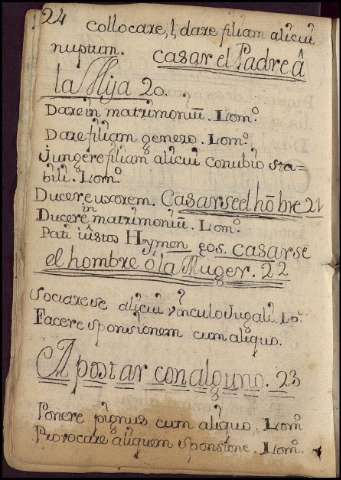 24
collocare, l, dare filiam alicui
nuptum. casar el Padre â
la Hija 20.
Dare in matrimoniũ. Lomº.
Dare filiam genero. Lomº.
jungere filiam alicui conubio sta-
bili. Lomº.
Ducere uxorem. Casarse el hõbre 21
Ducere in matrimoniũ. Lomº.
Pati iustos Hymen eos. casarse
el hombre ô la Muger. 22
Sociare se alicui vinculo Jugali. Lº.
Facere sponsionem cum aliquo.
Apostar con alguno. 23
Ponere pignus cum aliquo. Lomº
Provocare aliquem sponsione. Lomº.